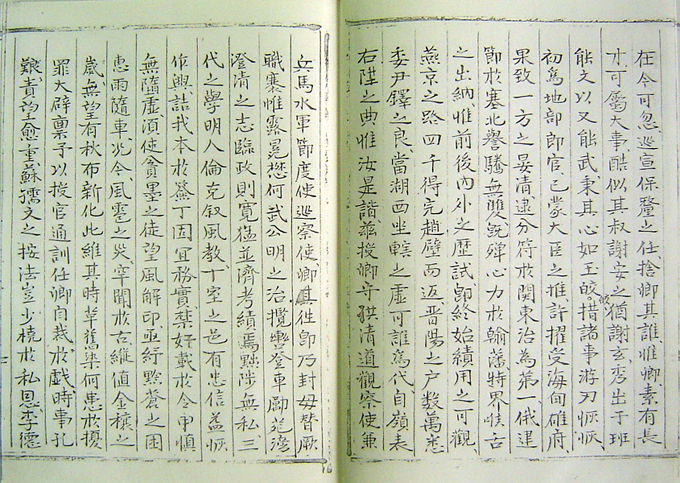 在今可忽巡宣保釐之任捨卿其誰惟卿素有長
才可屬大事酷似其叔謝安之猶謝玄秀出于班
能文以又能武秉其心如玉皎皎措諸事游刃恢恢
初爲地部郎官已蒙大臣之推許擢受海甸雄府
果致一方之晏清逮分符於関東治為第一俄建
節於塞北譽騰無雙旣殫心力於翰藩特畀喉舌
之出納惟前後内外之歷試卽終始績用之可觀
燕京之路四千得完趙璧而返晋陽之户数萬悉
委尹鐸之良當湖西坐轄之虛可誰爲代自領表
右陞之典惟汝是諧玆授卿守洪清道觀察使兼
兵馬水軍節度使巡察使卿其徃卽乃封毋替厥
職褰帷露冕懋何武公明之治攬轡登車勵范滂
澄清之志臨政則寬猛並濟考績焉黜陟無私三
代之學明人倫克叙風教十室之邑有忠信益恢
作興詰我本於益丁固宜務實禁奸載於令甲慎
無隨虛須使貪墨之徒望風解印亟紓黔蒼之困
惠雨隨車况今風雹之災寔聞於古維値金穰之
歲無望有秋布新化此維其時革舊染何患於擾
罪大辟稟予以授官通訓任卿自裁於戲時事孔
艱責望愈重蘇孺文之按法豈少撓於私恩李德